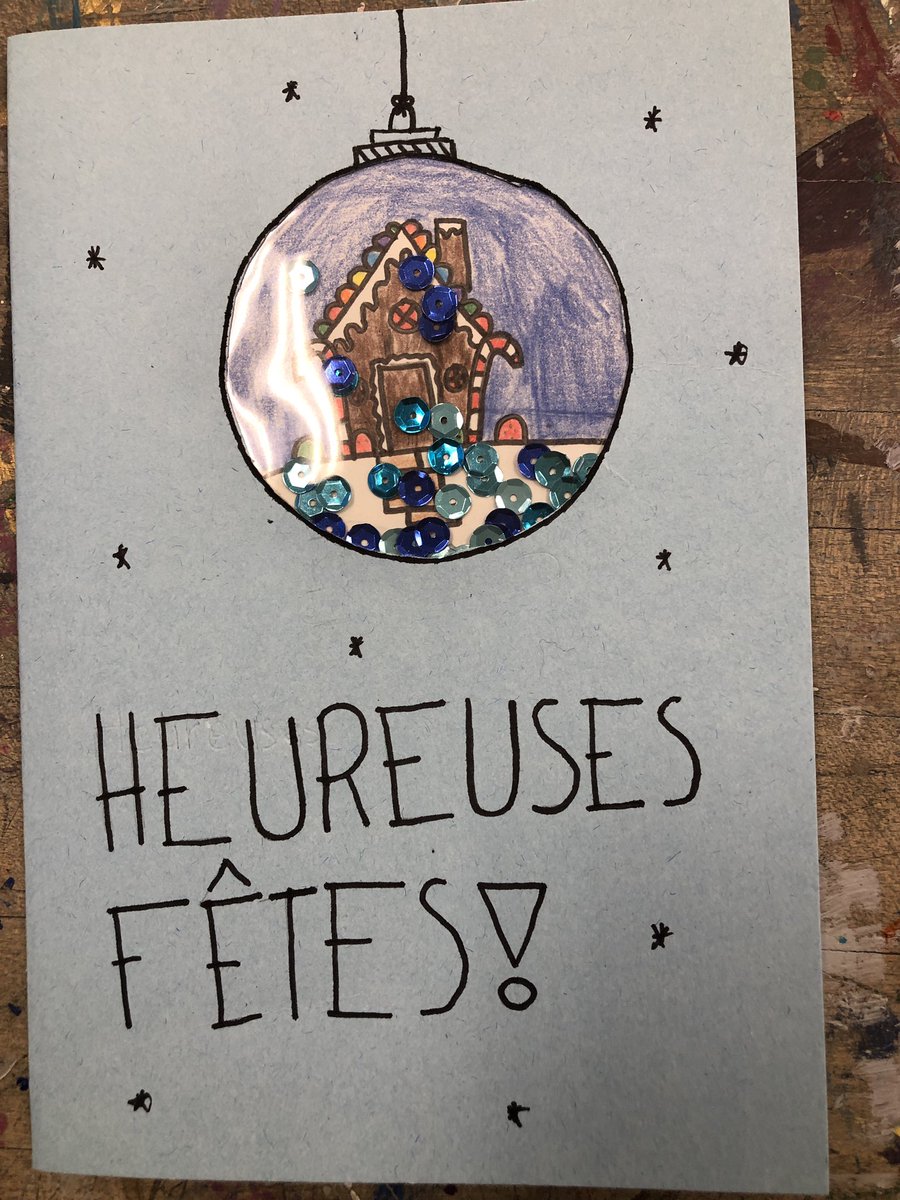 HEUREUSES
FÊTES!